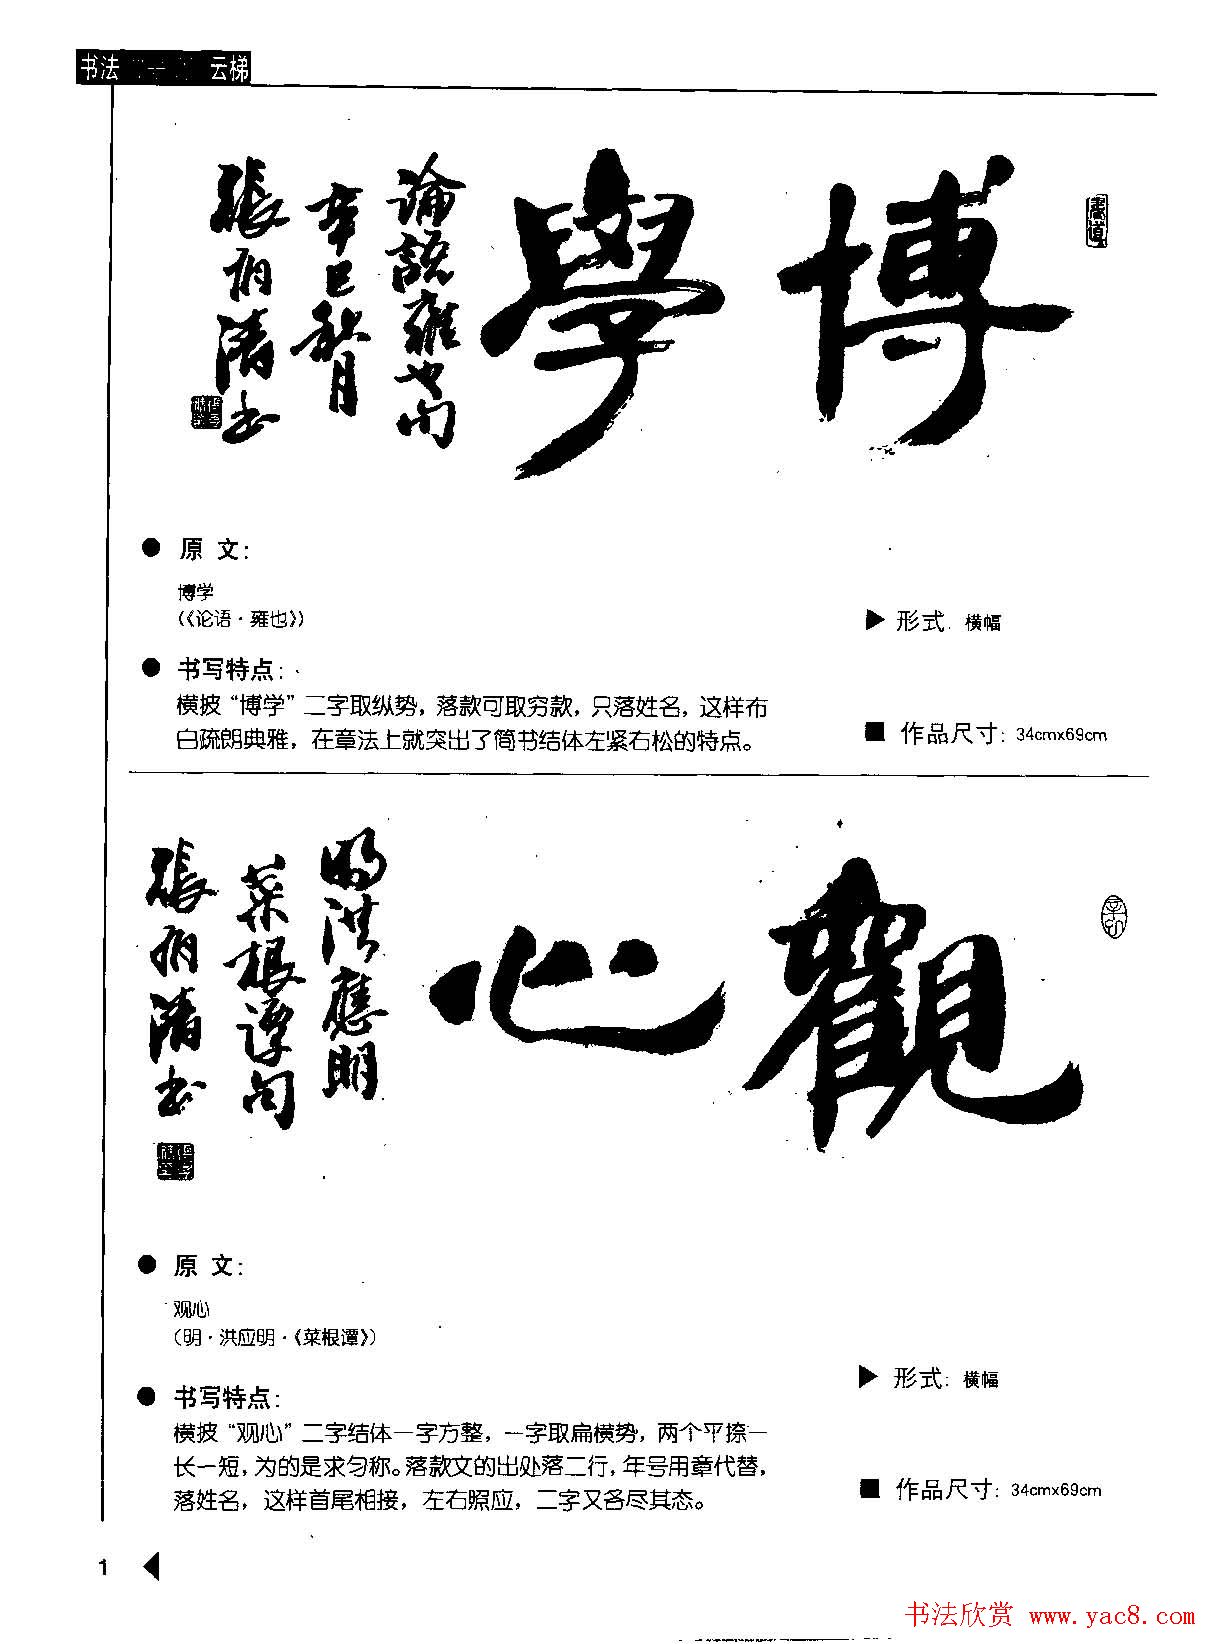 书法 云梯
博學
論語雍也句
辛巳秋月
張炳清书
原文:
博学
(《论语·雍也》)
▶ 形式: 横幅
书写特点:
横披“博学”二字取纵势，落款可取穷款，只落姓名，这样布
白疏朗典雅，在章法上就突出了简书结体左紧右松的特点。
■ 作品尺寸: 34cmx69cm
觀心
明洪應明
菜根谭句
張炳清书
原文:
观心
(明·洪应明·《菜根谭》)
▶ 形式: 横幅
书写特点:
横披“观心”二字结体一字方整，一字取扁横势，两个平捺一
长一短，为的是求匀称。落款文的出处落二行，年号用章代替，
落姓名，这样首尾相接，左右照应，二字又各尽其态。
■ 作品尺寸: 34cmx69cm
1
书法欣赏 www.yac8.com